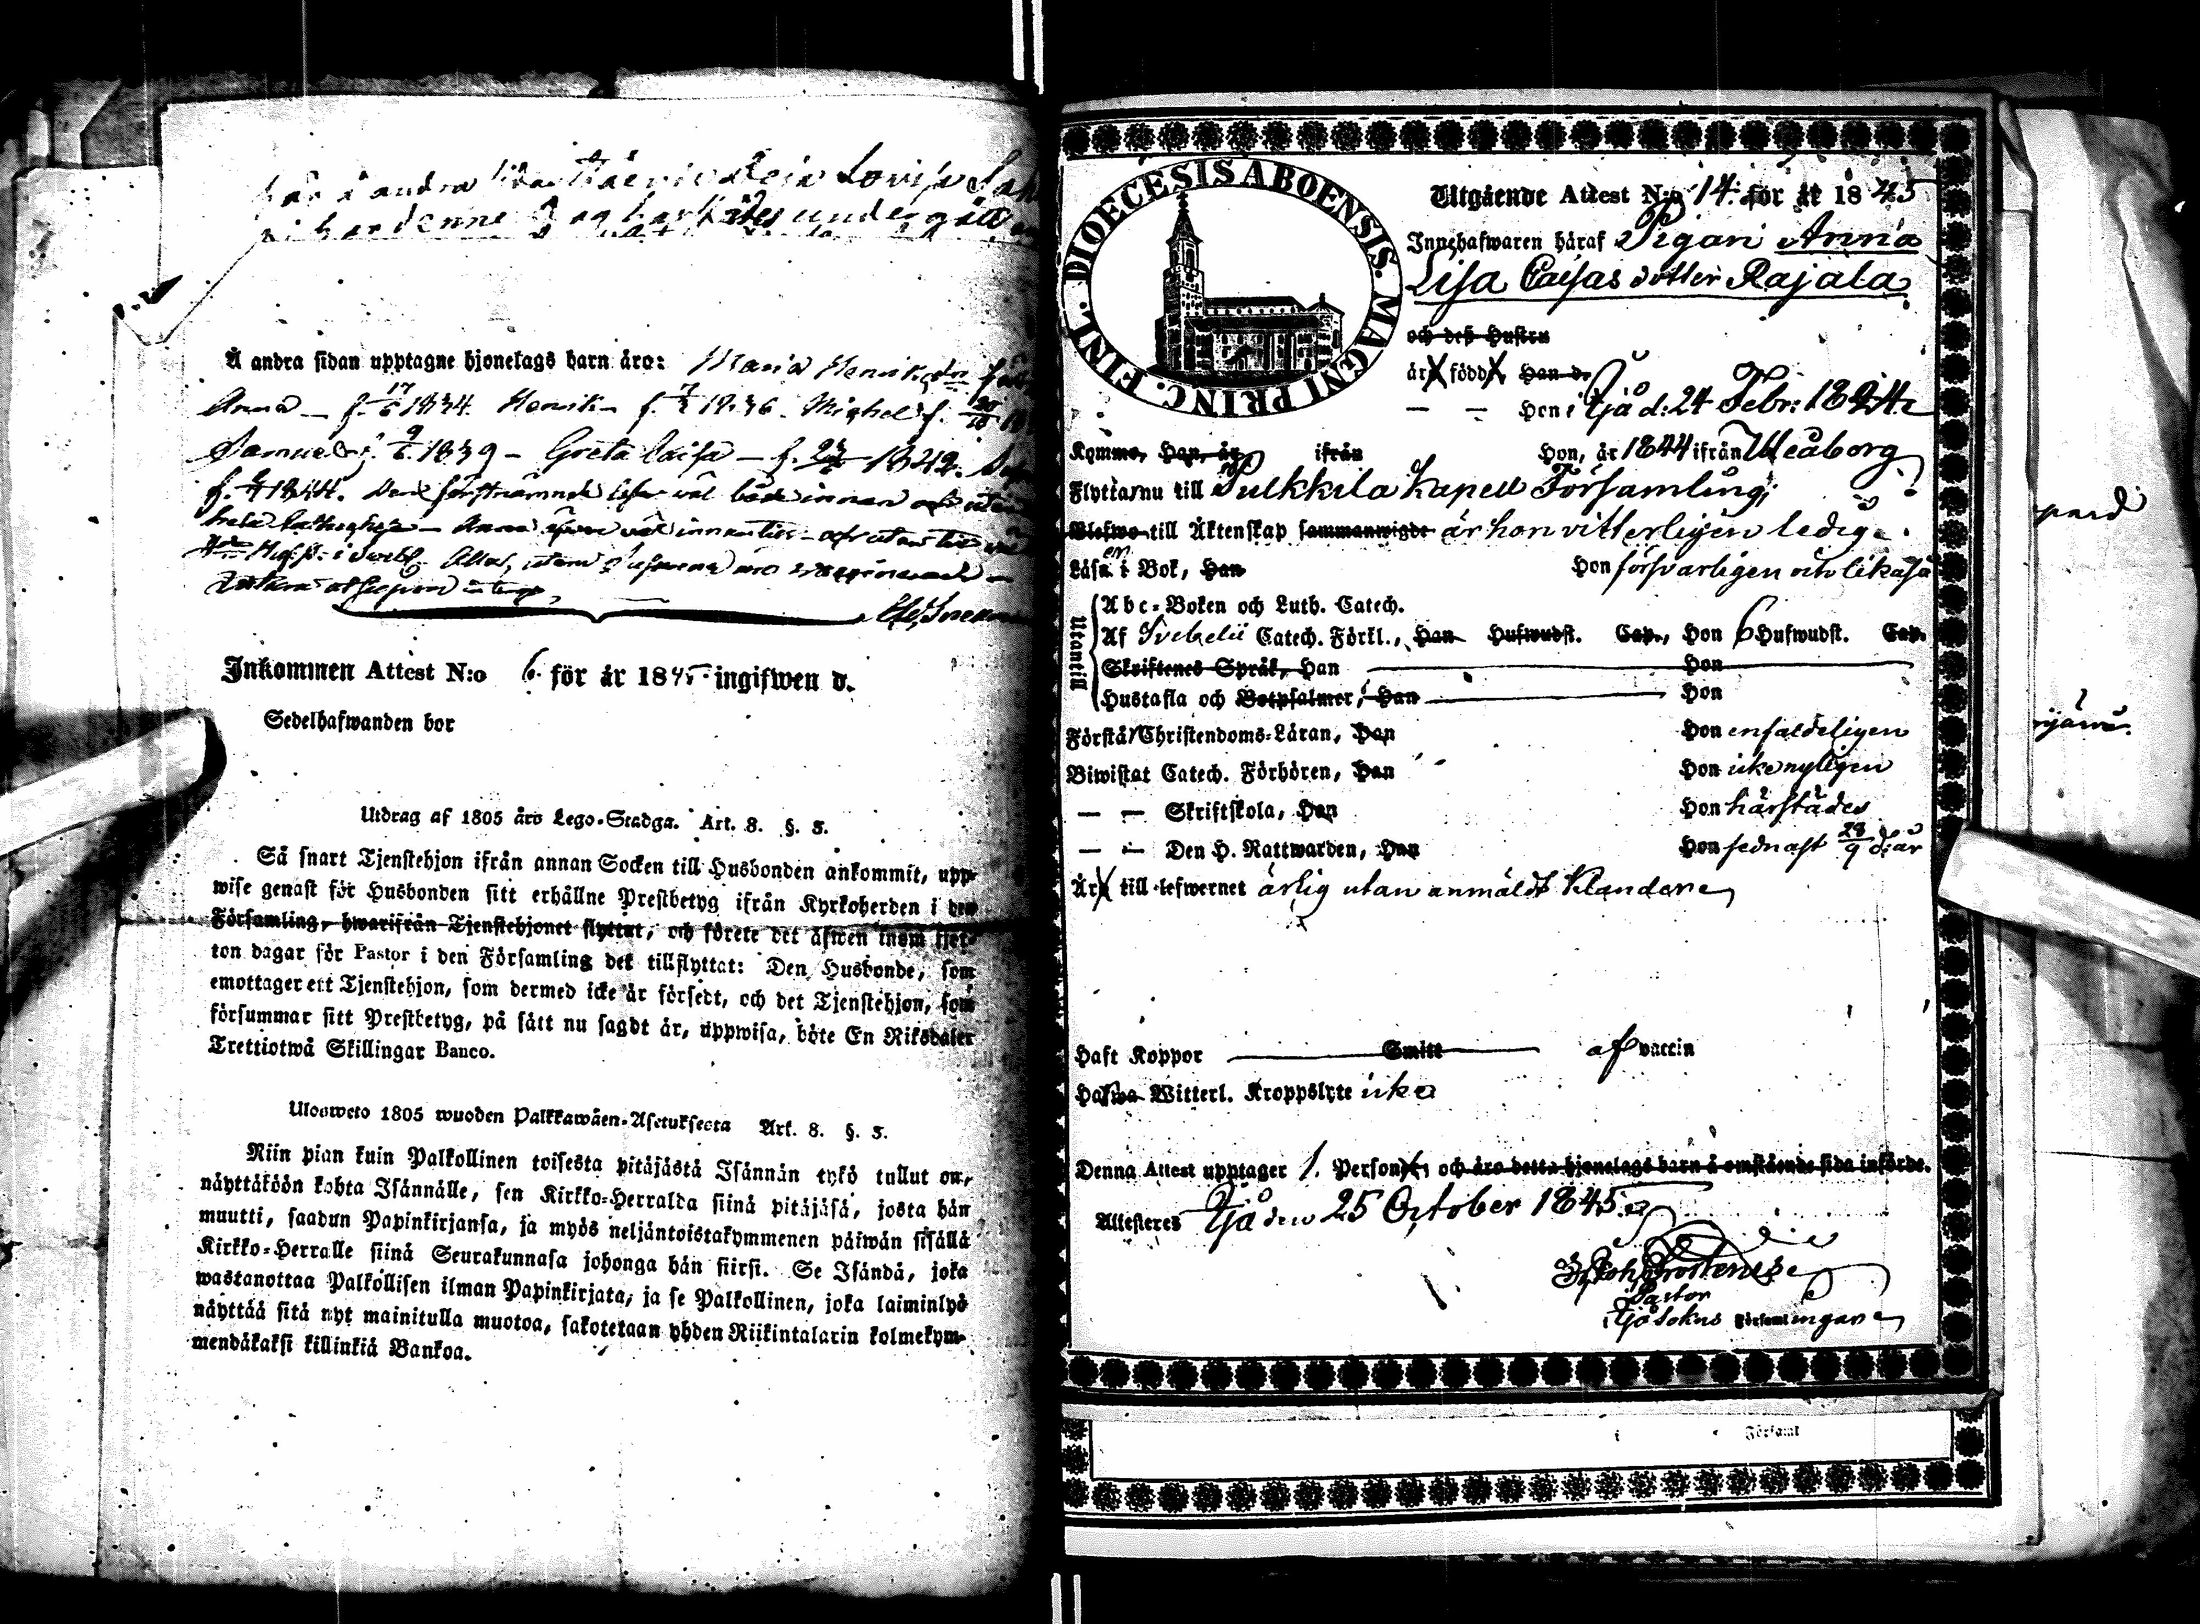 här å andra sidan Lovisa
denne dag har undergått
Å andra sidan upptagne hjonelags barn äro: Maria Henriksdr
Anna — f. 17/6 1834. Henrik — f. 1836. Mighel f.
Samuel f. 9/6 1839 — Greta Caisa — f. 1842.
f. 1844. väl både innan och utan
Anna väl innantill
i Sveb.
Inkommen Attest N:o 6. för år 1845 ingifwen d.
Sedelhafwanden bor
Utdrag af 1805 års Lego-Stadga. Art. 8. §. 3.
Så snart Tjenstehjon ifrån annan Socken till Husbonden ankommit, upp-
wise genast för Husbonden sitt erhållne Prestbetyg ifrån Kyrkoherden i den
Församling, hwarifrån Tjenstehjonet flyttat, och förete det äfwen inom fjor-
ton dagar för Pastor i den Församling det tillflyttat: Den Husbonde, som
emottager ett Tjenstehjon, som dermed icke är försedt, och det Tjenstehjon, som
försummar sitt Prestbetyg, på sätt nu sagdt är, uppwisa, böte En Riksdaler
Trettiotwå Skillingar Banco.
Ulosweto 1805 wuoden Palkkawäen-Asetuksesta Art. 8. §. 3.
Niin pian kuin Palkollinen toisesta pitäjästä Isännän tykö tullut on,
näyttäköön kohta Isännälle, sen Kirkko-Herralda siinä pitäjäsä, josta hän
muutti, saadun Papinkirjansa, ja myös neljäntoistakymmenen päiwän sisällä
Kirkko-Herralle siinä Seurakunnasa johonga hän siirsi. Se Isändä, joka
wastanottaa Palkollisen ilman Papinkirjata, ja se Palkollinen, joka laiminlyö
näyttää sitä nyt mainitulla muotoa, sakotetaan yhden Riikintalarin kolmekym-
mendäkaksi killinkiä Bankoa.
FINL. DIOECESIS ABOENSIS. MAGNI PRINC.
Utgående Attest N:o 14. för år 1845
Innehafwaren häraf Pigan Anna
Lisa Caisas dotter Rajala
och deß Hustru
är född, Han d.
— — Hon i Ijå d: 24 Febr: 1824
Komme, Han, år ifrån Hon, år 1844 ifrån Uleåborg
Flyttar nu till Pulkkila Kapell Församling;
Blefwo till Äktenskap sammanwigde är hon vitterligen ledig.
Läsa i Bok, Han Hon försvarligen och likaså
Utantill
Abc-Boken och Luth. Catech.
Af Svebelii Catech. Förkl., Han Hufwudst. Cap., Hon 6 Hufwudst. Cap.
Skriftenes Språk, Han Hon
Hustafla och Botpsalmer, Han Hon
Förstå Christendoms-Läran, Han Hon enfaldeligen
Biwistat Catech. Förhören, Han Hon icke nyligen
— — Skriftskola, Han Hon härstädes
— — Den H. Nattwarden, Han Hon sednast 28/9 d: år
Är till lefwernet ärlig utan anmäldt klander
Haft Koppor Smitt af vaccin
Hafwa Witterl. Kroppslyte icke
Denna Attest upptager 1. Person, och äro detta hjonelags barn å omstående sida införde.
Attesteres Ijå den 25 October 1845.
Joh. Frosterus
Pastor
Ijå Sokns Församlingar
Församl